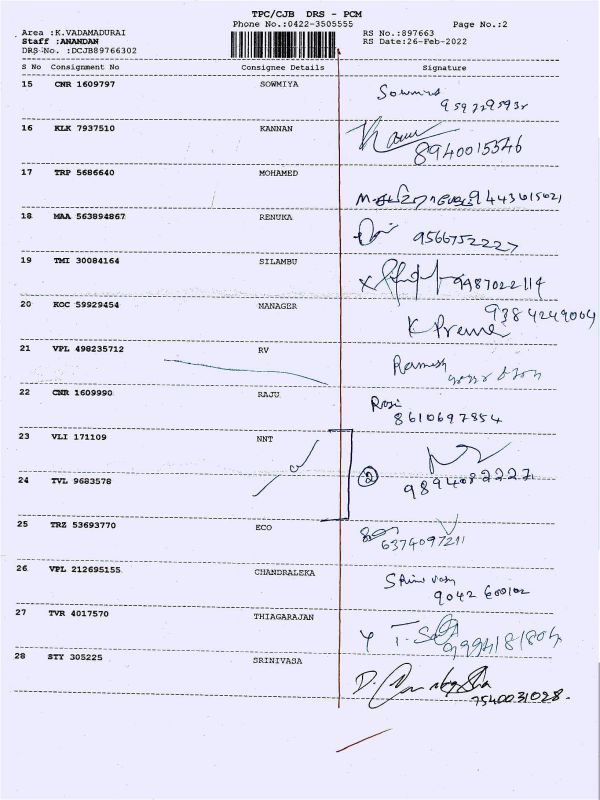 TPC/CJB DRS - PCM
Phone No.:0422-3505555 Page No.:2
Area :K.VADAMADURAI RS No.:897663
Staff :ANANDAN RS Date:26-Feb-2022
DRS No. :DCJB89766302
S No Consignment No Consignee Details Signature
15 CNR 1609797 SOWMIYA
16 KLK 7937510 KANNAN
8940015546
17 TRP 5686640 MOHAMED
18 MAA 563894867 RENUKA
9566752227
19 TMI 30084164 SILAMBU
9987022114
20 KOC 59929454 MANAGER
9384249004
K Prema
21 VPL 498235712 RV
Ramesh
22 CNR 1609990 RAJU
Rosi
8610697854
23 VLI 171109 NNT
24 TVL 9683578 2
9894082227
25 TRZ 53693770 ECO
6374097211
26 VPL 212695155 CHANDRALEKA
9042 600102
27 TVR 4017570 THIAGARAJAN
28 STY 305225 SRINIVASA
7540031028.